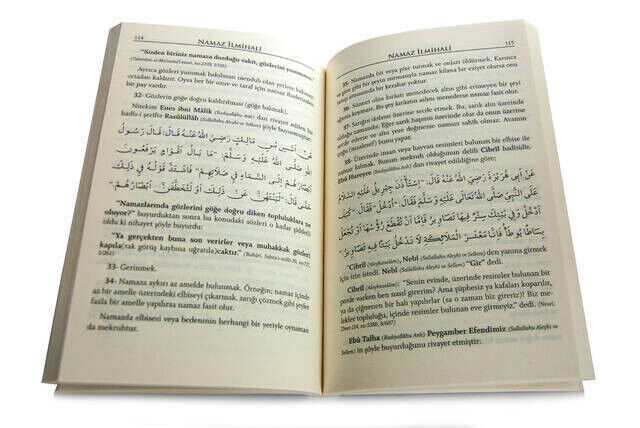 114
NAMAZ İLMİHALİ
"Sizden biriniz namaza durduğu vakit, gözlerini yummasın."
Ayrıca gözleri yummak bakılması mendub olan yerlere bakmayı
ortadan kaldırır. Oysa her bir uzuv ve taraf için namaz ibadetinden
bir pay vardır.
32- Gözlerin göğe doğru kaldırılması (göğe bakmak).
Nitekim Enes ibni Mâlik (Radıyallâhu Anh) dan rivayet edilen bir
hadîs-i şerifte Rasûlüllâh (Sallallahu Aleyhi ve Sellem) şöyle buyurmuştur:
عَنْ أَنَسِ بْنِ مَالِكٍ رَضِيَ اللهُ عَنْهُ قَالَ: قَالَ رَسُولُ
اللهِ صَلَّى اللهُ عَلَيْهِ وَسَلَّمَ: "مَا بَالُ أَقْوَامٍ يَرْفَعُونَ
أَبْصَارَهُمْ إِلَى السَّمَاءِ فِي صَلَاتِهِمْ." فَاشْتَدَّ قَوْلُهُ فِي ذٰلِكَ
حَتَّى قَالَ: "لَيَنْتَهُنَّ عَنْ ذٰلِكَ أَوْ لَتُخْطَفَنَّ أَبْصَارُهُمْ"
"Namazlarında gözlerini göğe doğru diken topluluklara ne
oluyor?" buyurduktan sonra bu konudaki sözleri o kadar şiddetli
oldu ki nihayet şöyle buyurdu:
"Ya gerçekten buna son verirler veya muhakkak gözleri
kapıla(rak görüş kaybına uğratıla)caktır."
33- Gerinmek.
34- Namaza aykırı az amelde bulunmak. Örneğin; namaz içinde
az bir amelle üzerindeki elbiseyi çıkarmak, sarığı çözmek gibi şeyler
fazla bir amelle yapılırsa namaz fasit olur.
Namazda elbisesi veya bedeninin herhangi bir yeriyle oynaman
da mekruhtur.
NAMAZ İLMİHALİ
115
35- Namazda bit veya pire tutmak ve onları öldürmek. Karınca
bir kerahat yoktur.
36- Sünnet olan kolları
37- Sarığın dolamı üzerine secde etmek. Bu, sarık alın üzerinde
olduğu zamandır. Eğer sarık başının üzerinde olur da onun üzerinde
secde ederse ve alnı yere değmezse namazı sahih olmaz. Avamın
çoğu (maalesef) bunu yapar.
38- Üzerinde insan veya hayvan resimleri bulunan bir elbise ile
namaz kılmak. Bunun mekruh olduğunun delili Cibrîl hadisidir.
Ebû Hureyre (Radıyallâhu Anh) dan rivayet edildiğine göre;
عَنْ أَبِي هُرَيْرَةَ رَضِيَ اللهُ عَنْهُ قَالَ: "اسْتَأْذَنَ جِبْرِيلُ عَلَيْهِ السَّلَامُ
عَلَى النَّبِيِّ صَلَّى اللهُ تَعَالَى عَلَيْهِ وَسَلَّمَ فَقَالَ: "ادْخُلْ" فَقَالَ: "كَيْفَ
أَدْخُلُ وَفِي بَيْتِكَ سِتْرٌ فِيهِ تَصَاوِيرُ فَإِمَّا أَنْ تُقْطَعَ رُؤُوسُهَا أَوْ تُجْعَلَ
بِسَاطًا يُوطَأُ فَإِنَّا مَعْشَرَ الْمَلَائِكَةِ لَا نَدْخُلُ بَيْتًا فِيهِ تَصَاوِيرُ"
"Cibrîl (Aleyhisselâm), Nebî (Sallallahu Aleyhi ve Sellem) den yanına girmek
için izin istedi. Nebî (Sallallahu Aleyhi ve Sellem) "Gir" dedi.
Cibrîl (Aleyhisselâm): "Senin evinde, üzerinde resimler bulunan bir
perde varken ben nasıl girerim? Ama şüphesiz ya kafaları koparılır,
ya da çiğnenen bir halı yapılırlar (sa o zaman biz gireriz!) Biz me-
lekler topluluğu, içinde resimler bulunan eve girmeyiz." dedi. (Nesei,
Zînet:114, no:5380, 8/607)
Ebû Talha (Radıyallâhu Anh) Peygamber Efendimiz (Sallallahu Aleyhi ve
Sellem) in şöyle buyurduğunu rivayet etmiştir: